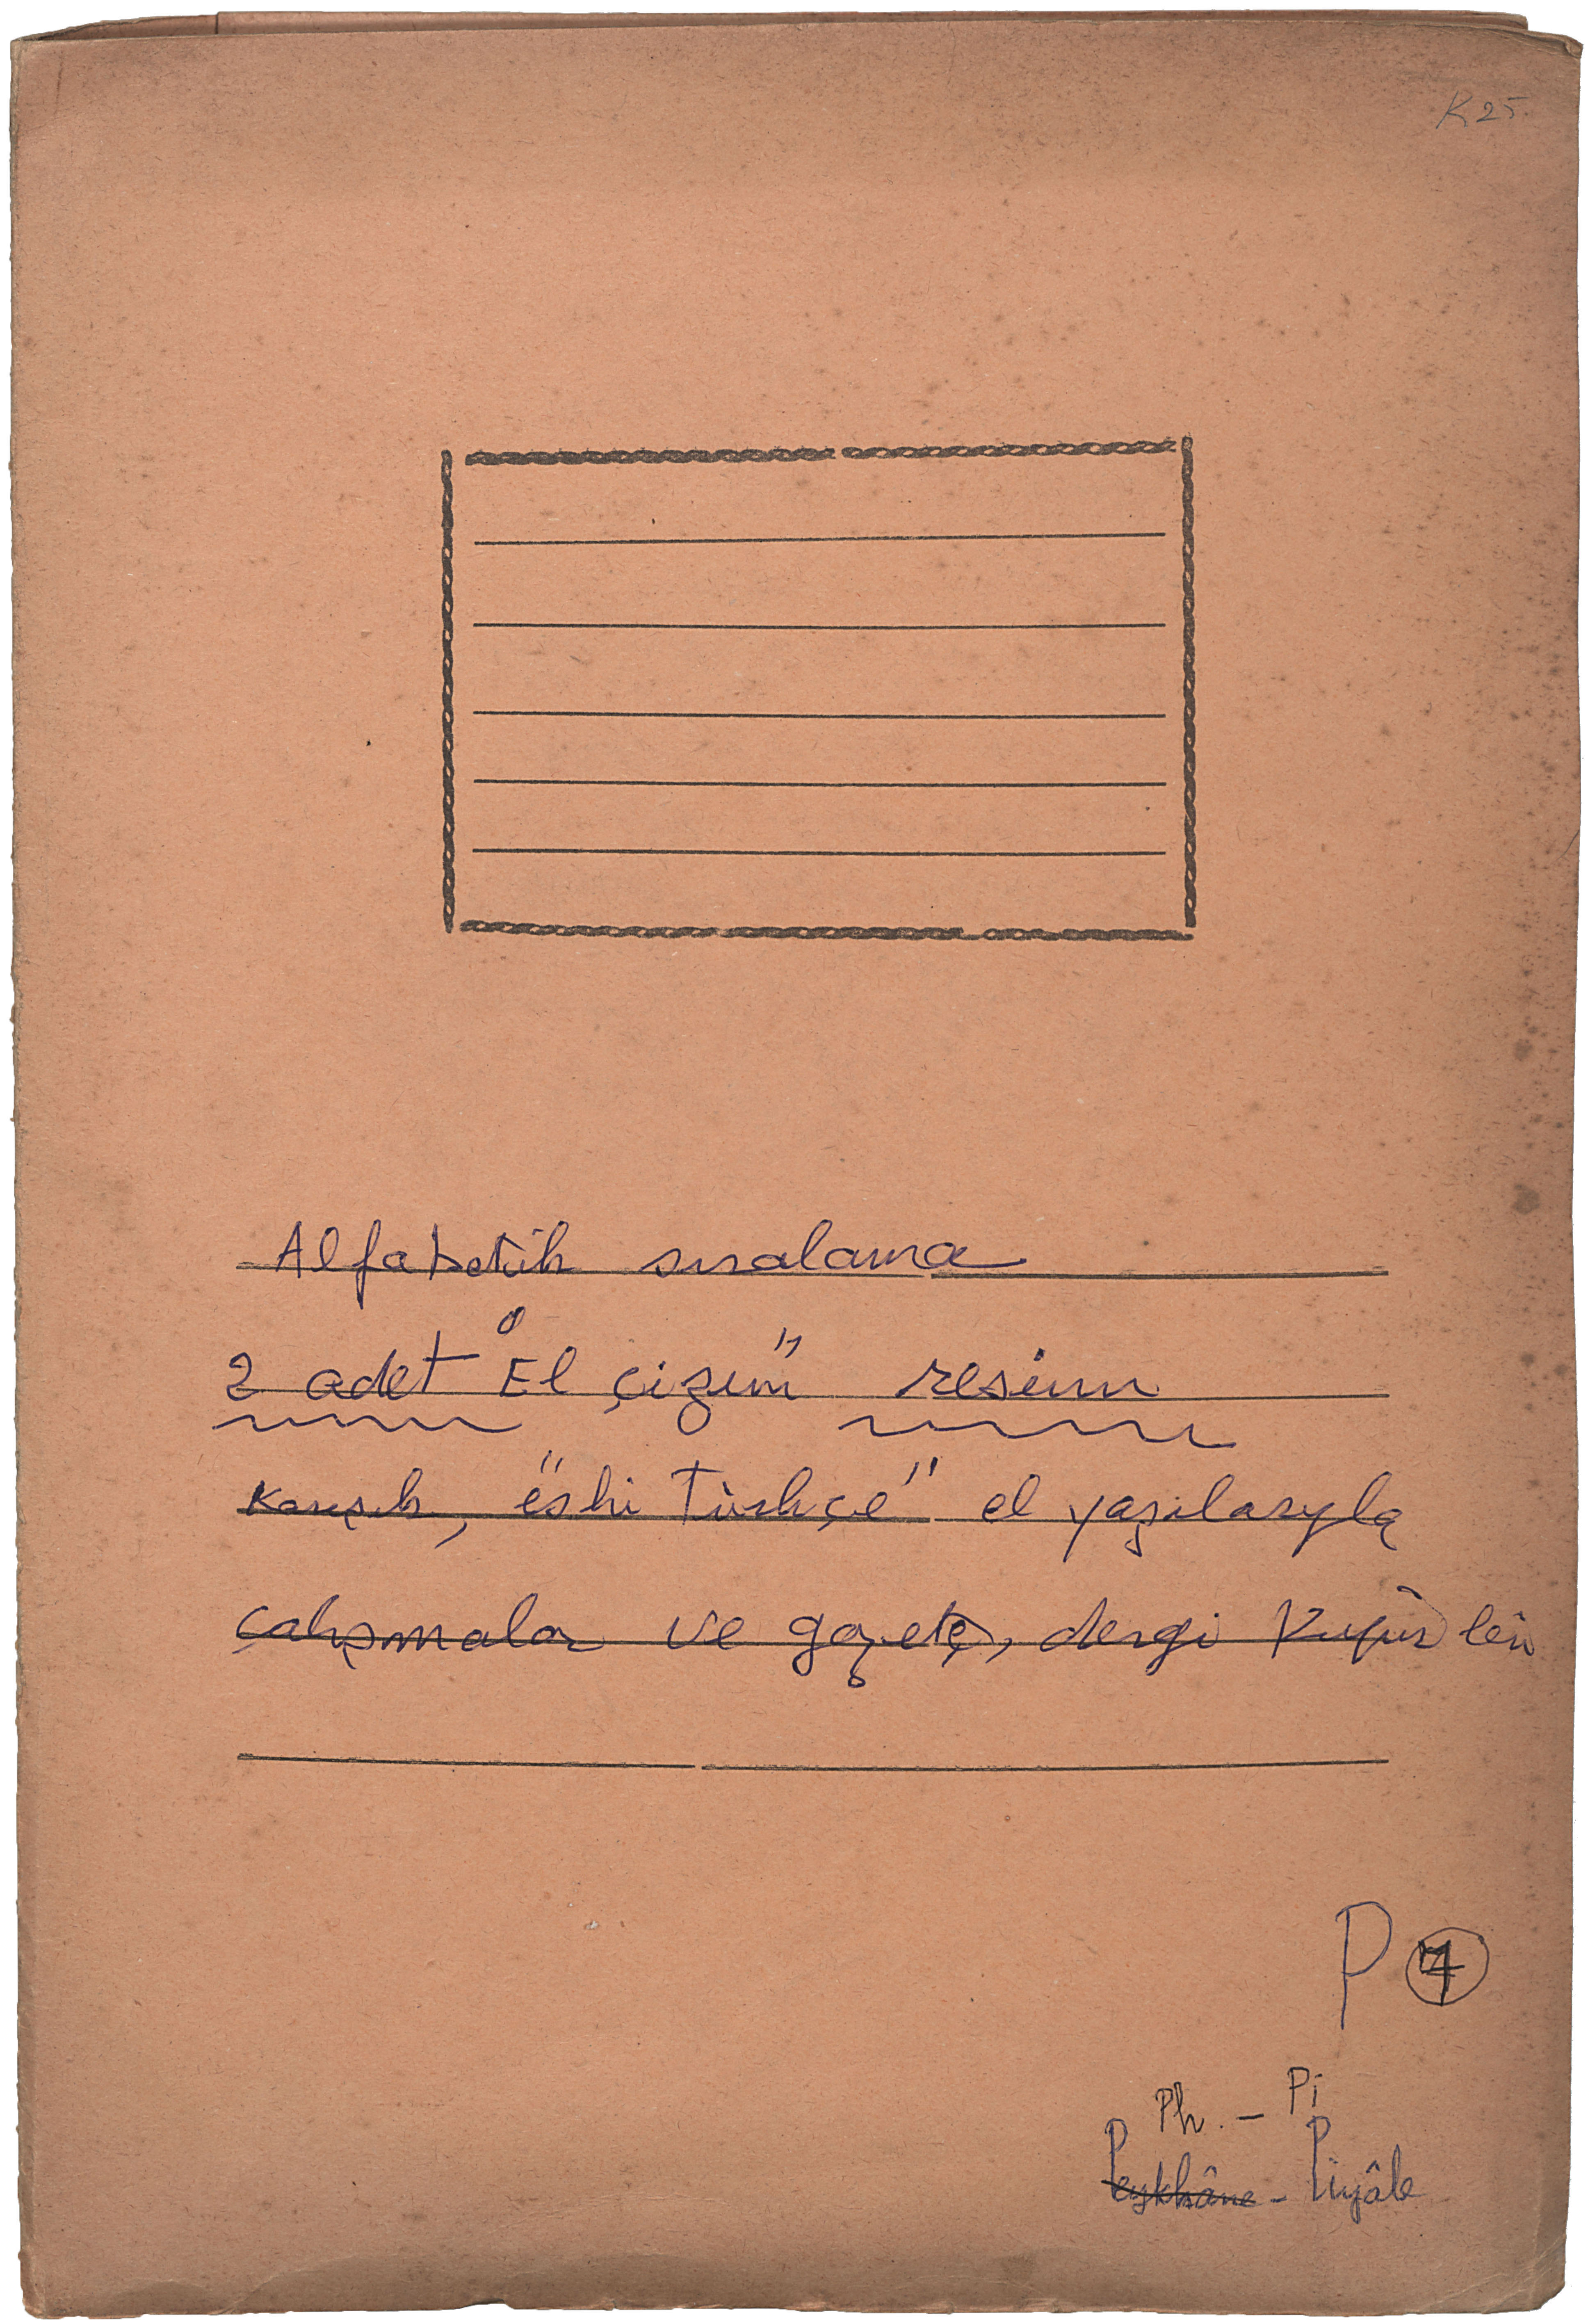 K25.
Alfabetik sıralama
2 adet "El çizim" resim
Karışık, "eski Türkçe" el yazılarıyla
çalışmalar ve gazete, dergi Kupürleri
P 7
Ph. - Pi
Peykhâne - Piyâle